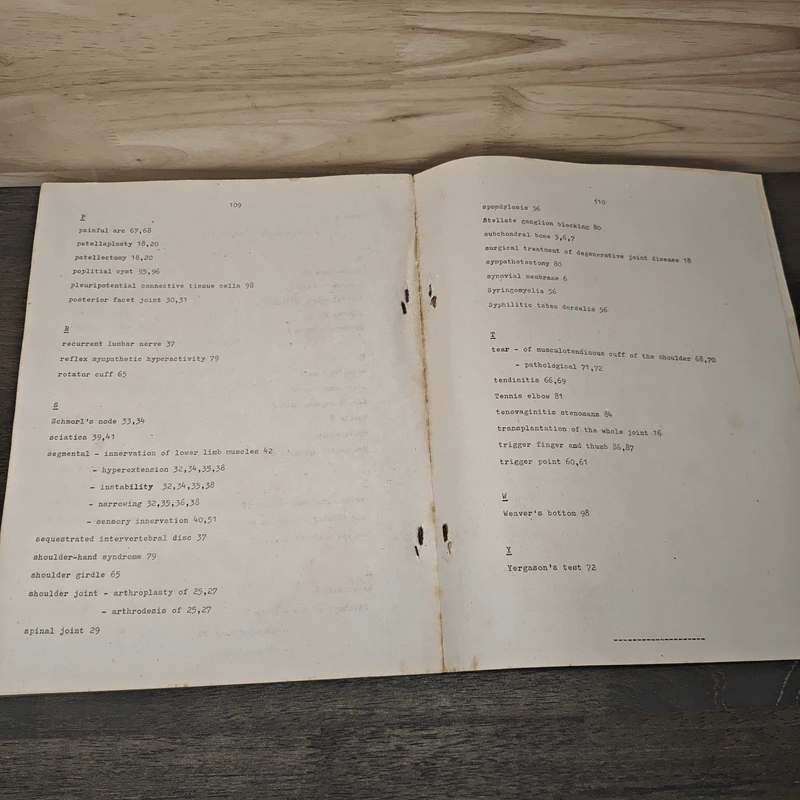 109
P
painful arc 67,68
patellaplasty 18,20
patellectomy 18,20
poplitial cyst 95,96
pleuripotential connective tissue cells 98
posterior facet joint 30,31
R
recurrent lumbar nerve 37
reflex sympathetic hyperactivity 79
rotator cuff 65
S
Schmorl's node 33,34
sciatica 39,41
segmental - innervation of lower limb muscles 42
- hyperextension 32,34,35,38
- instability 32,34,35,38
- narrowing 32,35,36,38
- sensory innervation 40,51
sequestrated intervertebral disc 37
shoulder-hand syndrome 79
shoulder girdle 65
shoulder joint - arthroplasty of 25,27
- arthrodesis of 25,27
spinal joint 29
110
spondylosis 56
Stellate ganglion blocking 80
subchondral bone 5,6,7
surgical treatment of degenerative joint disease 18
sympathetectomy 80
synovial membrane 6
Syringomyelia 56
Syphilitic tabes dorsalis 56
T
tear - of musculotendinous cuff of the shoulder 68,70
- pathological 71,72
tendinitis 66,69
Tennis elbow 81
tenovaginitis stenosans 84
transplantation of the whole joint 16
trigger finger and thumb 86,87
trigger point 60,61
W
Weaver's bottom 98
Y
Yergason's test 72